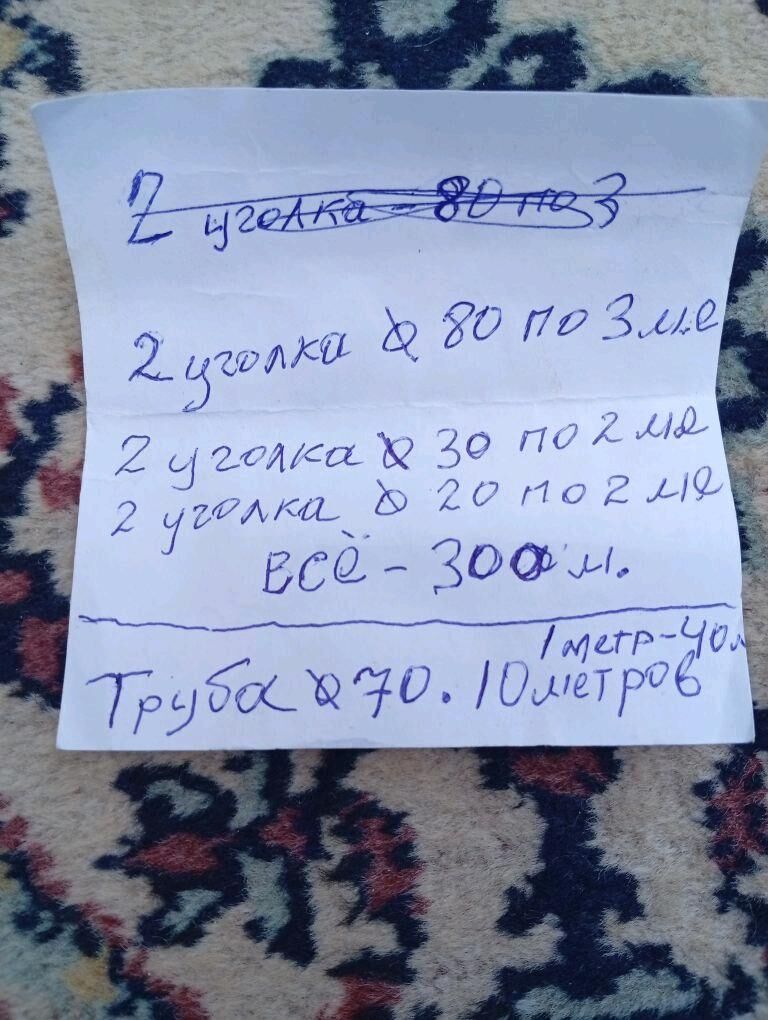 2 уголка - 80 по 3
2 уголка ⌀ 80 по 3 м-е
2 уголка ⌀ 30 по 2 м-е
2 уголка ⌀ 20 по 2 м-е
всё - 300 м.
1 метр-40м
Труба ⌀ 70. 10 метров